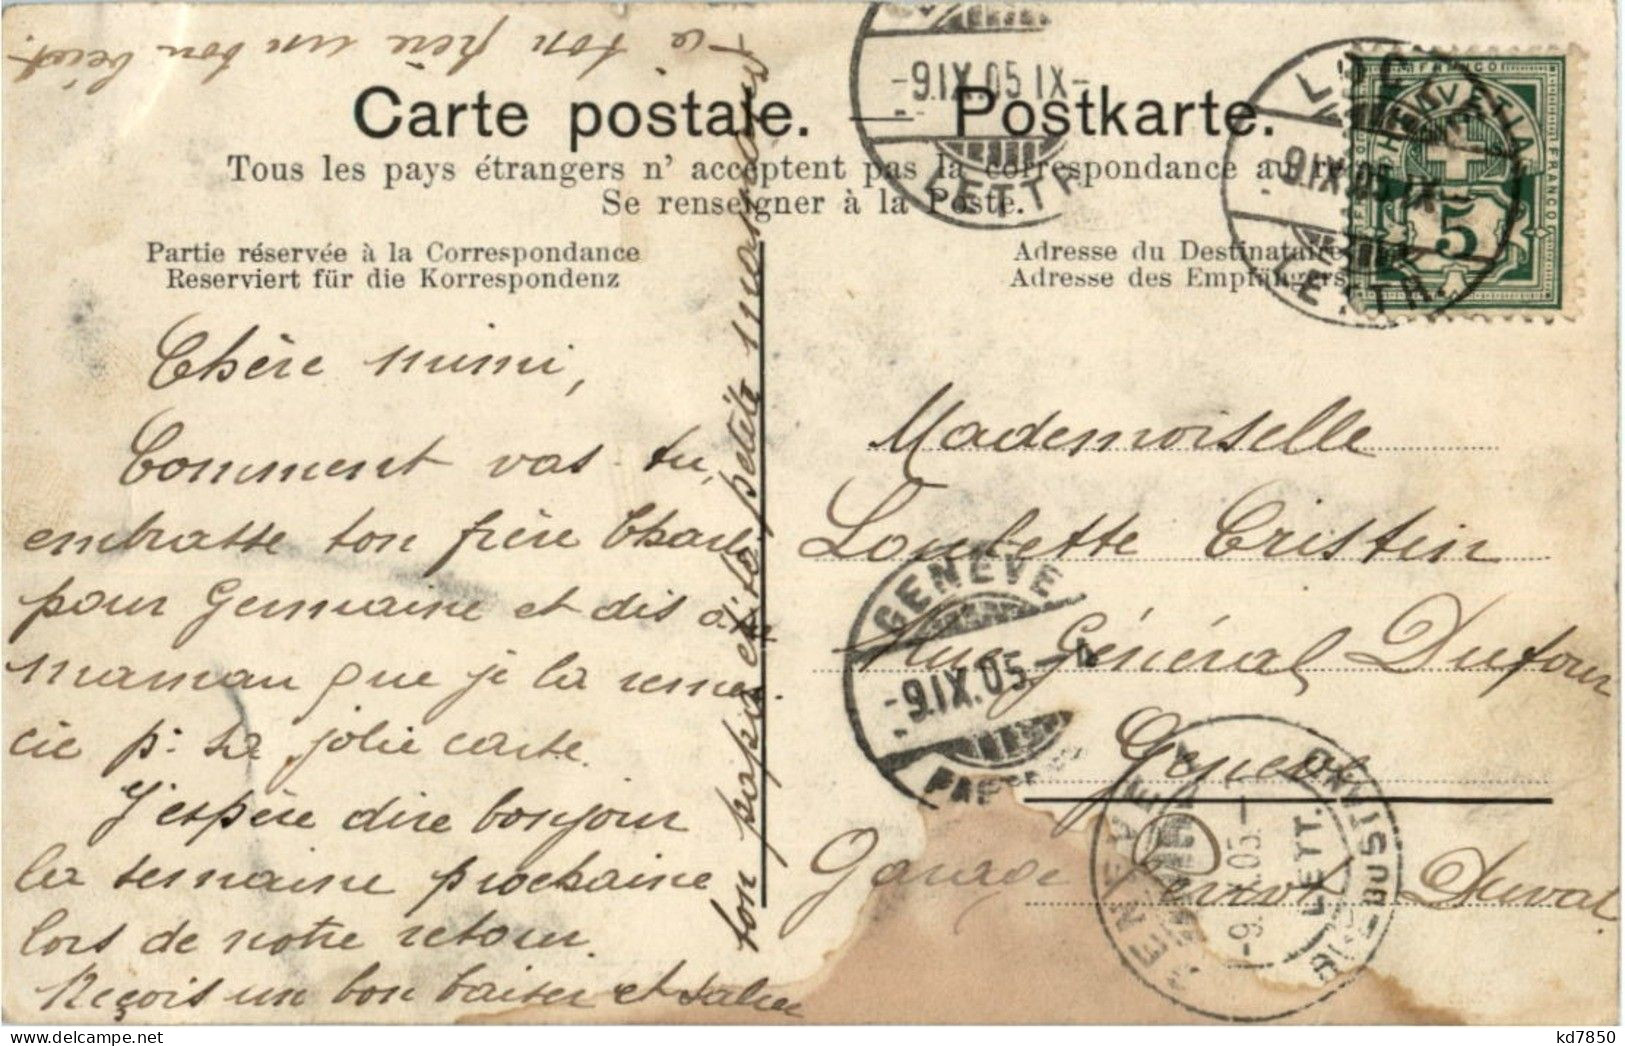 Carte postale. — Postkarte.
Tous les pays étrangers n' acceptent pas la correspondance au
Se renseigner à la Poste.
Partie réservée à la Correspondance
Reserviert für die Korrespondenz
Adresse du Destinataire
Adresse des Empfängers
Chère Mimi,
Comment vas-tu,
embrasse ton frère Charles
pour Germaine et dis à ta
maman que je la remer-
cie pr. sa jolie carte.
J'espère dire bonjour
la semaine prochaine
lors de notre retour.
Reçois un bon baiser et saluer
ton papa et ta petite maman
de ton frère un bon
Mademoiselle
Loulette Cristin
Rue Général Dufour
Genève
Garage Perrot Duval
HELVETIA
FRANCO
FRANCO
5
-9.IX.05.IX-
LETTR
-9.IX.05.IX-
GENÈVE
-9.IX.05-
LETT.
DISTRIBUTION
kd7850